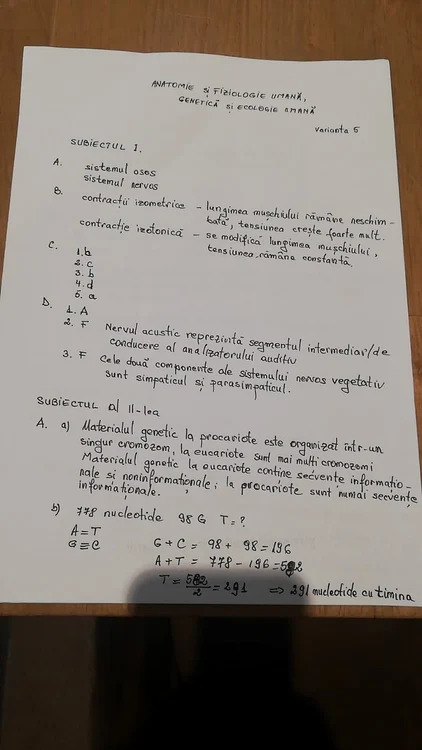 ANATOMIE și FIZIOLOGIE UMANĂ,
GENETICĂ și ECOLOGIE UMANĂ
Varianta 5
SUBIECTUL I.
A. sistemul osos
sistemul nervos
B. contracții izometrice - lungimea mușchiului rămâne neschim-
bată, tensiunea crește foarte mult.
contracție izotonică - se modifică lungimea mușchiului,
tensiunea rămâne constantă.
C. 1. b
2. c
3. b
4. d
5. a
D. 1. A
2. F Nervul acustic reprezintă segmentul intermediar/de
conducere al analizatorului auditiv
3. F Cele două componente ale sistemului nervos vegetativ
sunt simpaticul și parasimpaticul.
SUBIECTUL al II-lea
A. a) Materialul genetic la procariote este organizat într-un
singur cromozom, la eucariote sunt mai mulți cromozomi
Materialul genetic la eucariote conține secvențe informațio-
nale și noninformaționale; la procariote sunt numai secvențe
informaționale.
b) 778 nucleotide 98 G T = ?
A = T
G ≡ C G + C = 98 + 98 = 196
A + T = 778 - 196 = 582
T = 582/2 = 291 ⇒ 291 nucleotide cu timina